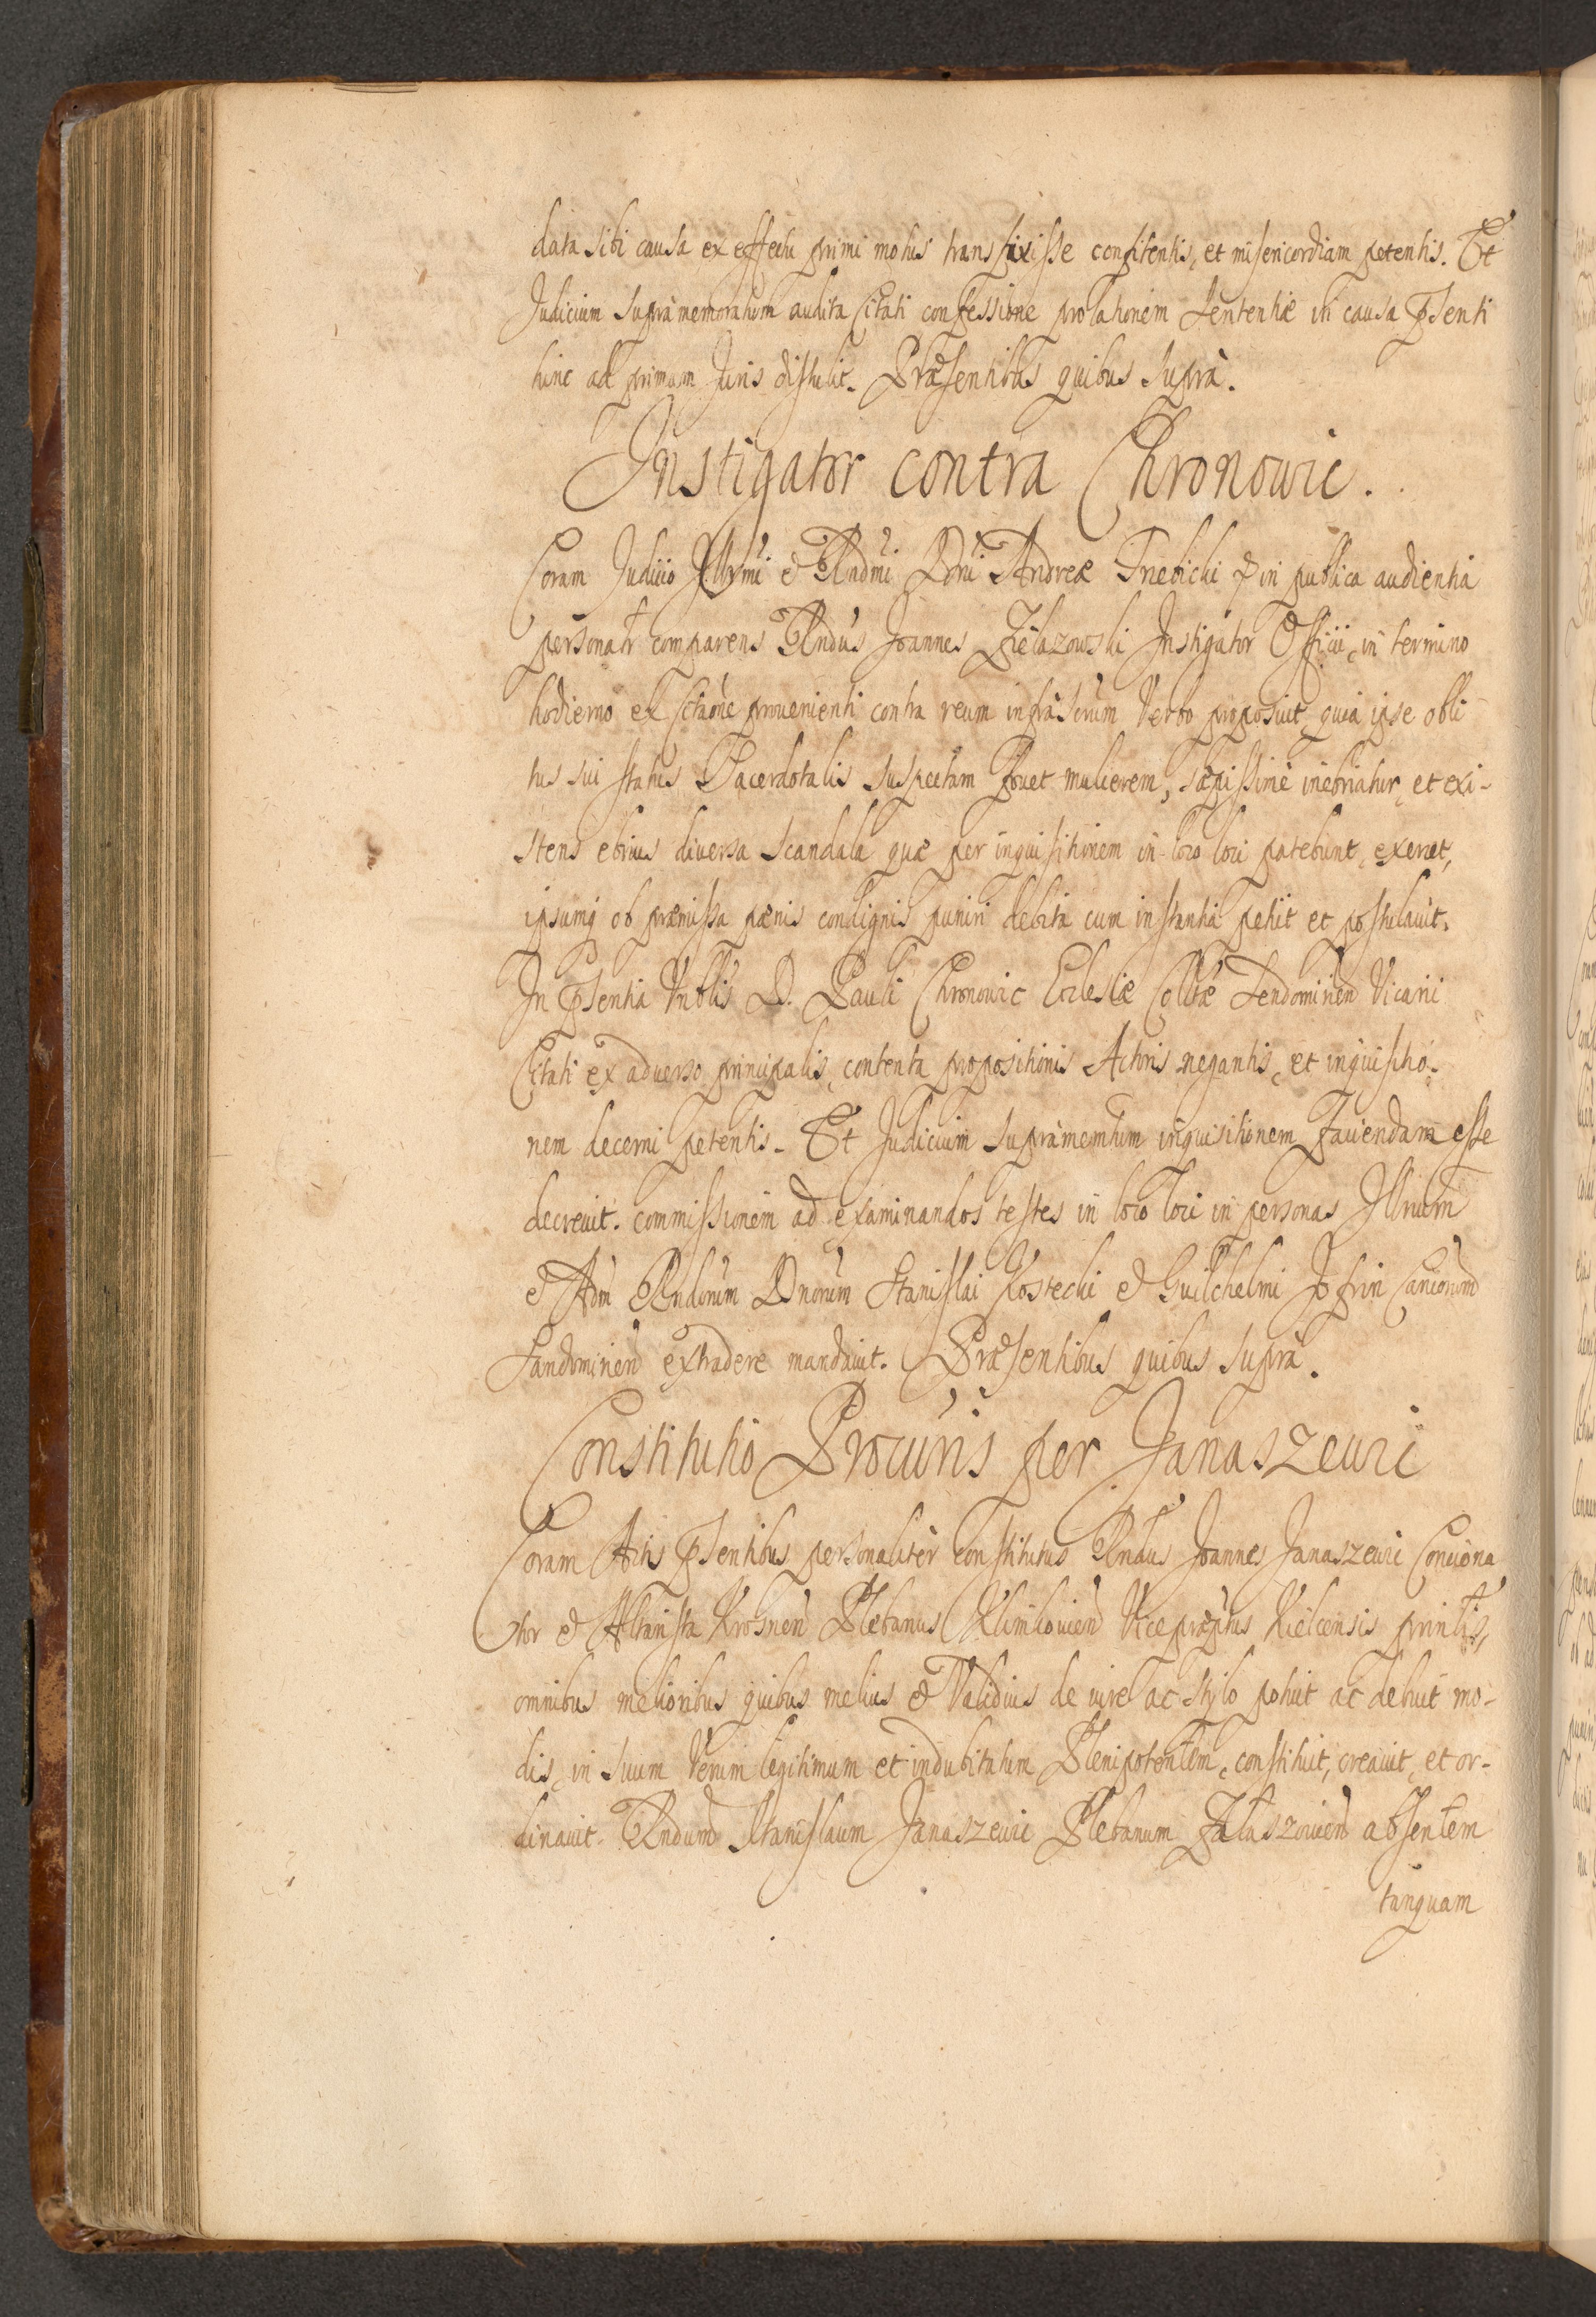 data sibi causa ex effectu primi motus transfixisse confitentis, et misericordiam petentis. Et
Judicium supramemoratum audita Citati confessione prolationem Sententiæ in causa pſenti
hinc ad primam Juris distulit. Præsentibus quibus supra.
Instigator contra Chronowic.
Coram Judicio Illrmi & Rndmi Dni Andreæ Trzebicki & in publica audientia
personalr comparens Rndus Joannes Zielazowski Instigator Officii, in termino
hodierno ex Citaone provenienti contra reum infrascrum Verbo proposuit, quia ipse obli-
tus sui status Sacerdotalis suspectam fovet mulierem, sæpissime inebriatur, et exi-
stens ebrius diversa scandala quæ per inquisitionem in loco loci patebunt, exercet,
ipsumq ob præmissa pænis condignis puniri debita cum instantia petiit et postulavit.
In pſentia Vnblis D. Pauli Chronowic Ecclesiæ Colltæ Sendomirien Vicarii
Citati ex adverso principalis, contenta propositionis Actoris negantis, et inquisitio-
nem decerni petentis. Et Judicium supramemtum inquisitionem faciendam esse
decrevit. commissionem ad examinandos testes in loco loci in personas Illrium
& Adm Rndorum Dnorum Stanislai Kostecki & Guilchelmi Joſrin Canicorum
Sandomirien extradere mandavit. Præsentibus quibus supra.
Constitutio Procuris per Janaszewic
Coram Actis pſentibus personaliter constitutus Rndus Joannes Janaszewic Conciona
tor & Altarista Krosnen Plebanus Klimkovien Vicepræptus Kielcensis prinlis,
omnibus melioribus quibus melius & Validius de iure ac stylo potuit ac debuit mo-
dis, in suum Verum legitimum et indubitatum Plenipotentem, constituit, creavit, et or-
dinavit. Rndum Stanislaum Janaszewic Plebanum Zataszovien absentem
tanquam